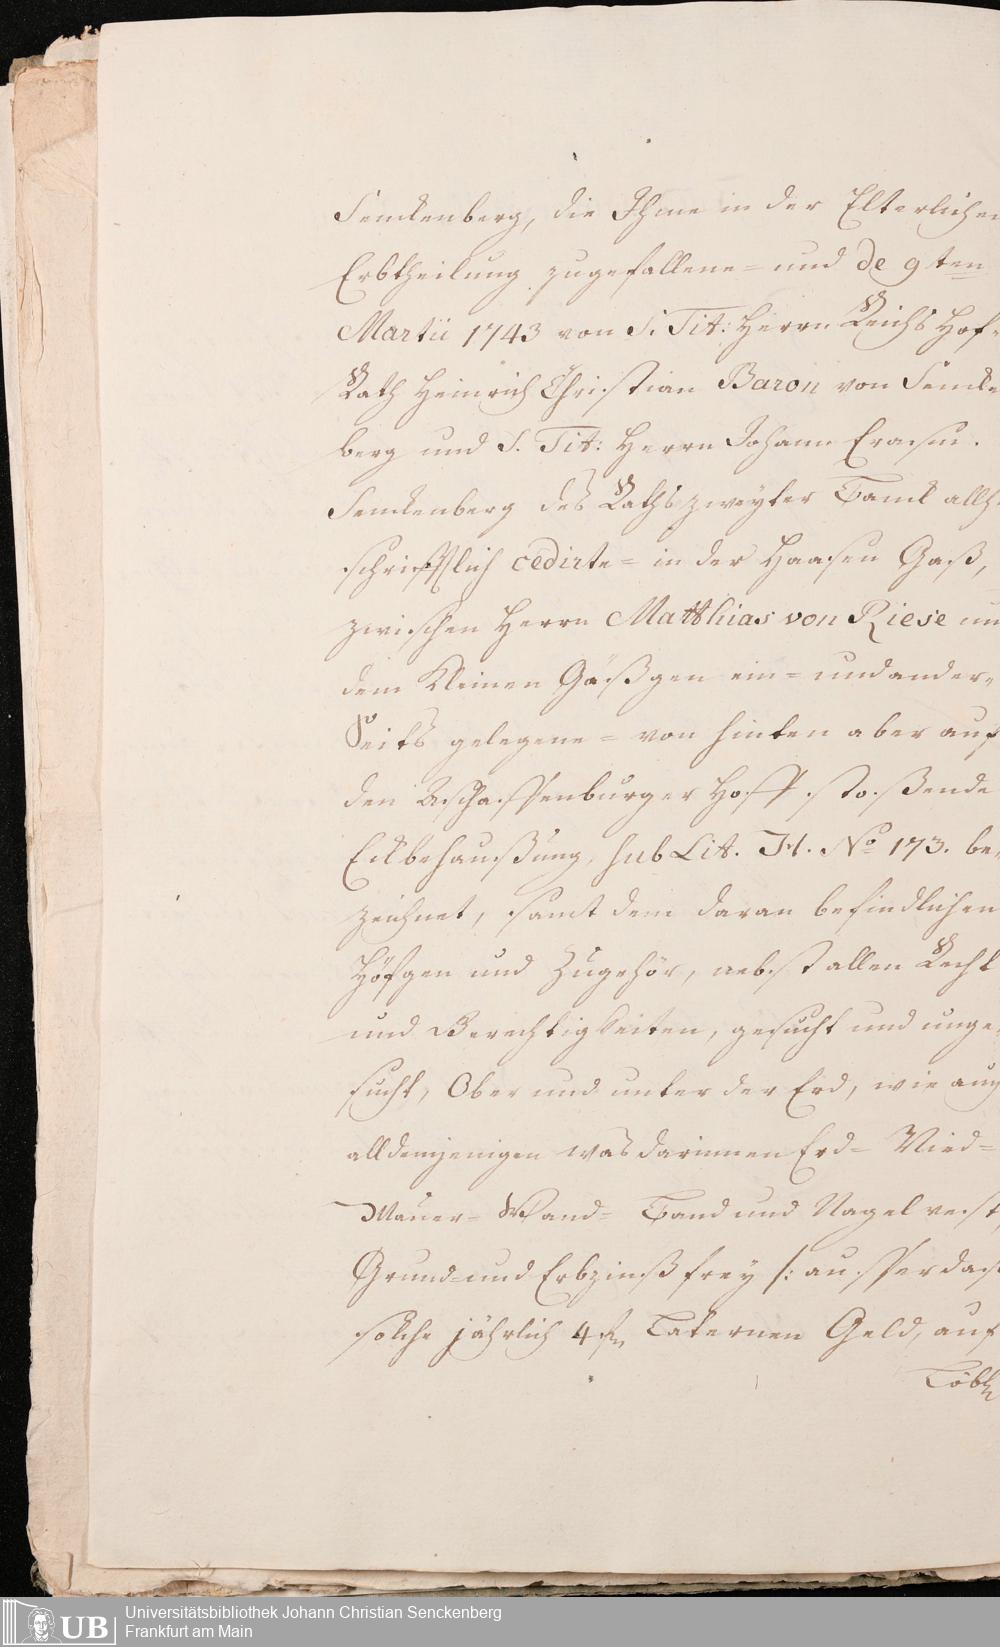 Senckenberg, die Ihme in der Elterlichen
Erbtheilung zugefallene= und de 9ten
Martii 1743 von S. Tit: Herrn Reichs Hof=
Rath Heinrich Christian Baron von Sencke
berg und S. Tit: Herrn Johann Erasm.
Senckenberg des Raths zweyter Banck allh.
schrifftlich cedirte= in der Haasen Gaß,
zwischen Herrn Matthias von Riese un
dem kleinen Gäßgen ein= und ander=
Seits gelegene= von hinten aber auf
den Aschaffenburger Hoff stoßende
Eckbehaußung, sub Lit. H. No 173. be=
zeichnet, samt dem daran befindlichen
Höfgen und Zugehör, nebst allen Recht
und Berechtigkeiten, gesucht und unge=
sucht, Ober und unter der Erd, wie auch
all demjenigen was darinnen Erd= Nied=
Mauer= Wand= Band und Nagel vest,
Grund= und Erbzinß frey /: ausser das
solche jährlich 4 fl Laternen Geld, auf
Löbl
Universitätsbibliothek Johann Christian Senckenberg
Frankfurt am Main
UB